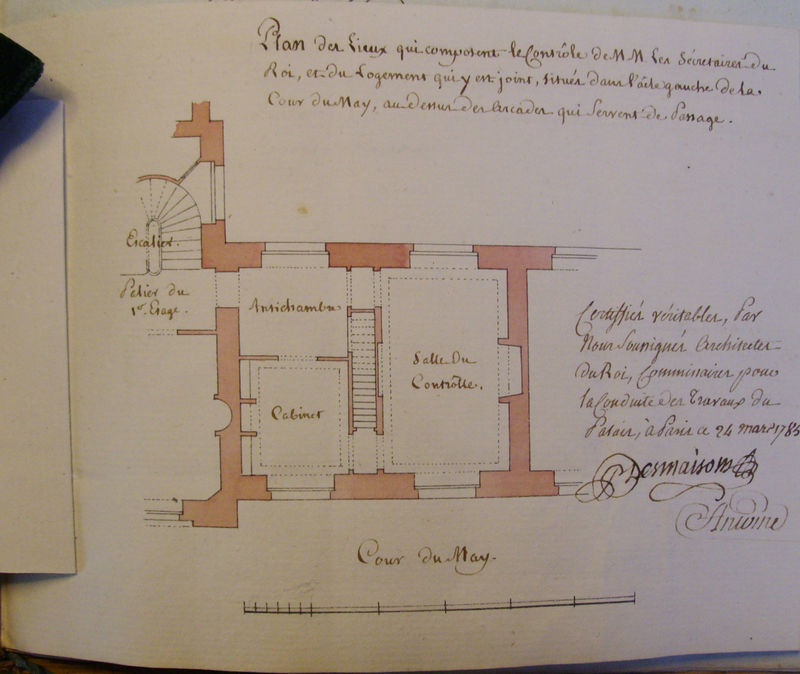 Plan des Lieux qui composent le Contrôle de M M. Les Sécretaires du
Roi, et du Logement qui y est joint, situés dans l'aîle gauche de la
Cour du May, au dessus des arcades qui servent de Passage.
Escalier.
Palier du
1er. Etage.
Antichambre
Salle Du
Contrôlle.
Cabinet
Certiffiés véritables, Par
Nous soussignés Architectes
du Roi, Commissaires pour
la Conduite des Travaux du
Palais, à Paris ce 24 mars 1785
Desmaisons
Antoine
Cour du May.